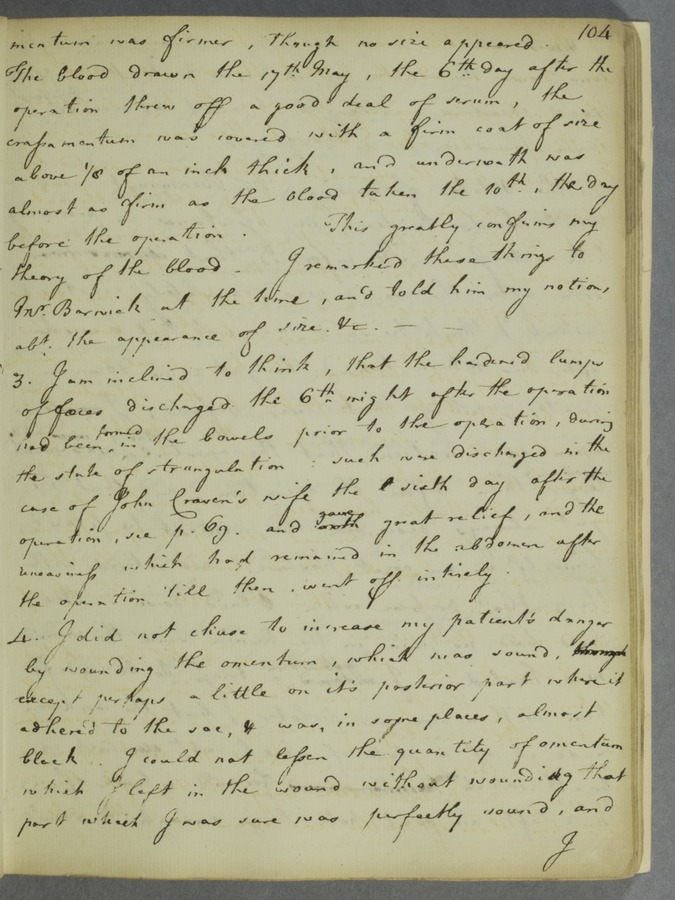 104
mentum was firmer, though no size appeared.
The blood drawn the 17th May, the 6th day after the
operation threw off a good deal of serum, the
crassamentum was covered with a firm coat of size
above 1/8 of an inch thick, and underneath was
almost as firm as the blood taken the 10th, the day
before the operation. This greatly confirms my
theory of the blood. I remarked these things to
Mr. Barwick at the time, and told him my notions
abt. the appearance of size. &c. — —
3. I am inclined to think, that the hardened lumps
of fæces discharged the 6th night after the operation
had been formed in the bowels prior to the operation, during
the state of strangulation: such were discharged in the
case of John Craven's wife the sixth day after the
operation, see p. 69. and gave great relief, and the
uneasiness which had remained in the abdomen after
the operation 'till then, went off intirely.
4. I did not chuse to increase my patient's danger
by wounding the omentum, which was sound, though
except perhaps a little on it's posterior part where it
adhered to the sac, & was, in some places, almost
black. I could not lessen the quantity of omentum
which I left in the wound without wounding that
part which I was sure was perfectly sound, and
I